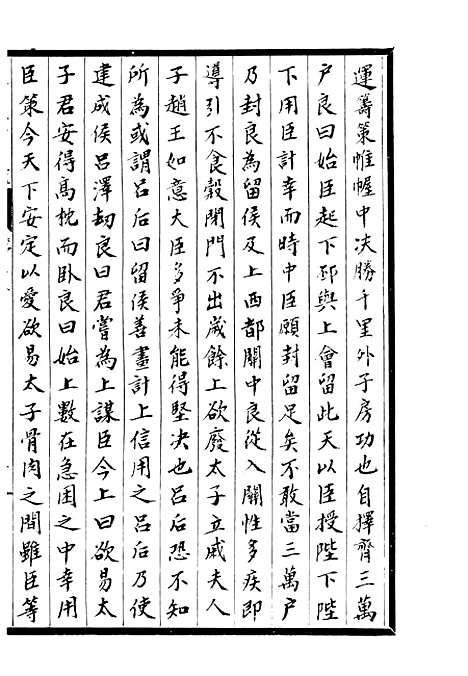 運籌策帷幄中決勝千里外子房功也自擇齊三萬
户良曰始臣起下邳與上會留此天以臣授陛下陛
下用臣計幸而時中臣願封留足矣不敢當三萬户
乃封良為留侯及上西都關中良從入關性多疾即
導引不食穀閉門不出歲餘上欲廢太子立戚夫人
子趙王如意大臣多爭未能得堅决也吕后恐不知
所為或謂吕后曰留侯善畫計上信用之吕后乃使
建成侯吕澤劫良曰君嘗為上謀臣今上曰欲易太
子君安得髙枕而卧良曰始上數在急困之中幸用
臣策今天下安定以愛欲易太子骨肉之間雖臣等